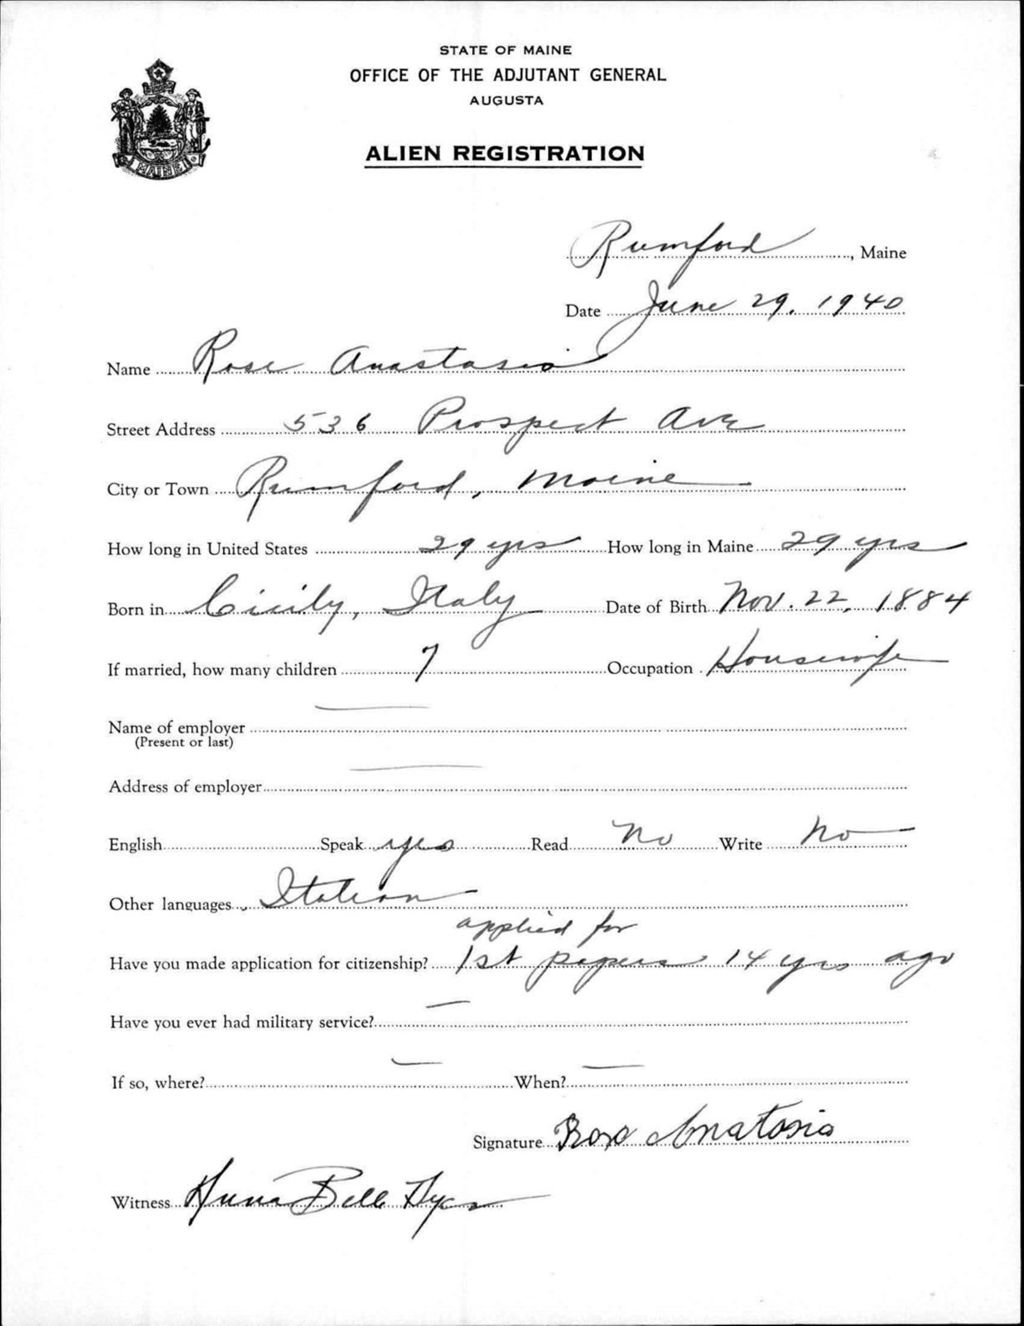 STATE OF MAINE
OFFICE OF THE ADJUTANT GENERAL
AUGUSTA
ALIEN REGISTRATION
MAINE
Rumford, Maine
Date June 29, 1940
Name Rose Anastasio
Street Address 536 Prospect Ave
City or Town Rumford, Maine
How long in United States 29 yrs How long in Maine 29 yrs
Born in Cicily, Italy Date of Birth Nov. 22, 1884
If married, how many children 7 Occupation Housewife
Name of employer
(Present or last)
Address of employer
English Speak yes Read No Write No
Other languages Italian
applied for
Have you made application for citizenship? 1st papers 14 yrs ago
Have you ever had military service?
If so, where? When?
Signature Rosa Anatosia
Witness Anna Bell